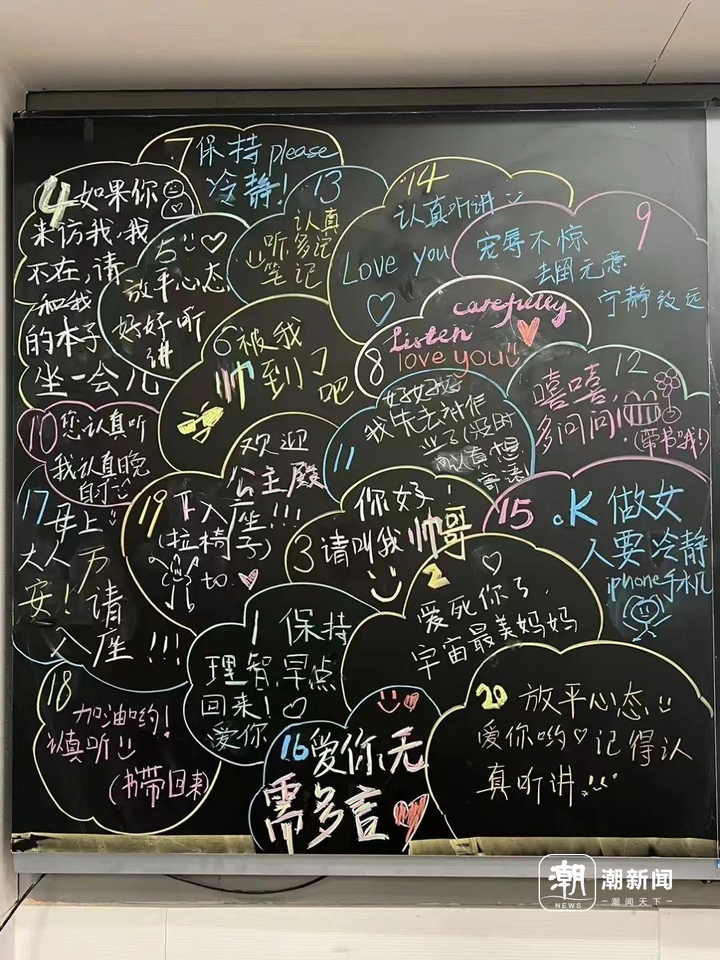 7 保持please
冷静!
4 如果你
来访我,我
不在,请
和我
的本子
坐一会儿
5
放平心态
好好听
讲
13
认真
听多记
笔记
14
认真听讲
Love you
9
宠辱不惊
去留无意
宁静致远
6 被我
帅到了
吧
carefully
Listen
8 love you
12
嘻嘻,
多问问!
(带书哦!)
10 您认真听
我认真晚
自习
11
好好好
我失去
17
母上
大人万
安!请
入座!!!
欢迎
公主殿
19 下入座!!!
(拉椅子)
to.
你好!
3 请叫我帅哥
15 ok 做女
人要冷静
iphone手机
2
爱死你了,
宇宙最美妈妈
1 保持
理智,早点
回来!
爱你
18
加油哟!
认真听
(书带回来)
16 爱你,无
需多言
20 放平心态
爱你哟 记得认
真听讲
潮 潮新闻
NEWS 潮闻天下